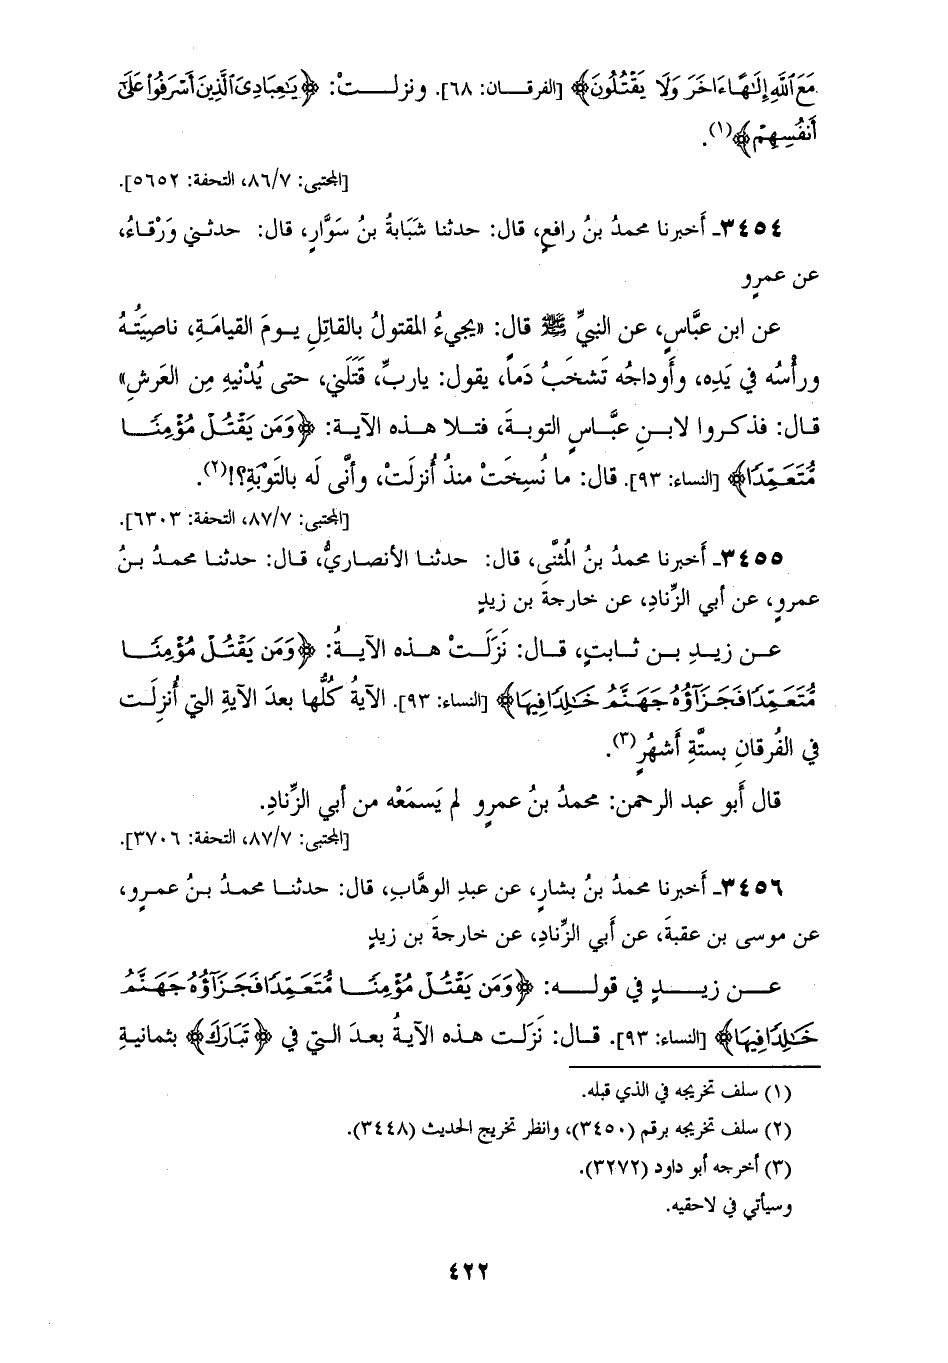 مَعَ ٱللَّهِ إِلَـٰهًا ءَاخَرَ وَلَا يَقْتُلُونَ﴾ [الفرقـــان: ٦٨]. ونزلــــتْ: ﴿يَـٰعِبَادِىَ ٱلَّذِينَ أَسْرَفُوا۟ عَلَىٰٓ
أَنفُسِهِمْ﴾(١).
[المجتبى: ٨٦/٧، التحفة: ٥٦٥٢].
٣٤٥٤ـ أَخبرنا محمدُ بنُ رافعٍ، قال: حدثنا شَبَابةُ بنُ سَوَّارٍ، قال: حدثـني وَرْقـاءُ،
عن عمرٍو
عن ابن عبَّاسٍ، عن النبيِّ ﷺ قال: «يجيءُ المقتولُ بالقاتلِ يـومَ القيامَـةِ، ناصيَتُـهُ
ورأْسُه في يَدِه، وأَوداجُه تَشخَبُ دَماً، يقول: ياربِّ، قَتَلَني، حتى يُدْنيهِ مِن العَرشِ»
قـال: فذكـروا لابـنِ عبَّـاسٍ التوبـةَ، فتـلا هـذه الآيـة: ﴿وَمَن يَقْتُـلْ مُؤْمِنًــا
مُّتَعَمِّدًا﴾ [النساء: ٩٣]. قال: ما نُسِخَتْ منذُ أُنزلَتْ، وأَنَّى لَه بالتَّوْبَةِ؟!(٢).
[المجتبى: ٨٧/٧، التحفة: ٦٣٠٣].
٣٤٥٥ـ أَخبرنا محمدُ بنُ المُثنَّى، قال: حدثنـا الأَنصـاريُّ، قـال: حدثنـا محمـدُ بـنُ
عمرٍو، عن أَبي الزِّنادِ، عن خارجةَ بن زيدٍ
عـن زيـدِ بـن ثـابتٍ، قـال: نَزَلَـتْ هـذه الآيـةُ: ﴿وَمَن يَقْتُـلْ مُؤْمِنًــا
مُّتَعَمِّدًا فَجَزَآؤُهُۥ جَهَنَّمُ خَـٰلِدًا فِيهَا﴾ [النساء: ٩٣]. الآيةُ كُلُّها بعدَ الآيةِ التي أُنزِلَـت
في الفُرقانِ بستَّةِ أَشهُرٍ(٣).
قال أَبو عبد الرحمن: محمدُ بنُ عمرٍو لم يَسمَعْه من أبي الزِّنادِ.
[المجتبى: ٨٧/٧، التحفة: ٣٧٠٦].
٣٤٥٦ـ أَخبرنا محمدُ بنُ بشارٍ، عن عبدِ الوهَّابِ، قال: حدثنـا محمـدُ بـنُ عمـرٍو،
عن موسى بن عقبةَ، عن أَبي الزِّنادِ، عن خارجةَ بن زيدٍ
عـــن زيـــــدٍ في قولـــه: ﴿وَمَن يَقْتُـلْ مُؤْمِنًــا مُّتَعَمِّدًا فَجَزَآؤُهُۥ جَهَنَّمُ
خَـٰلِدًا فِيهَا﴾ [النساء: ٩٣]. قـال: نَزَلَـت هـذه الآيـةُ بعـدَ الـتي في ﴿تَبَارَكَ﴾ بثمانيـةِ
(١) سلف تخريجه في الذي قبله.
(٢) سلف تخريجه برقم (٣٤٥٠)، وانظر تخريج الحديث (٣٤٤٨).
(٣) أخرجه أبو داود (٣٢٧٢).
وسيأتي في لاحقيه.
٤٢٢